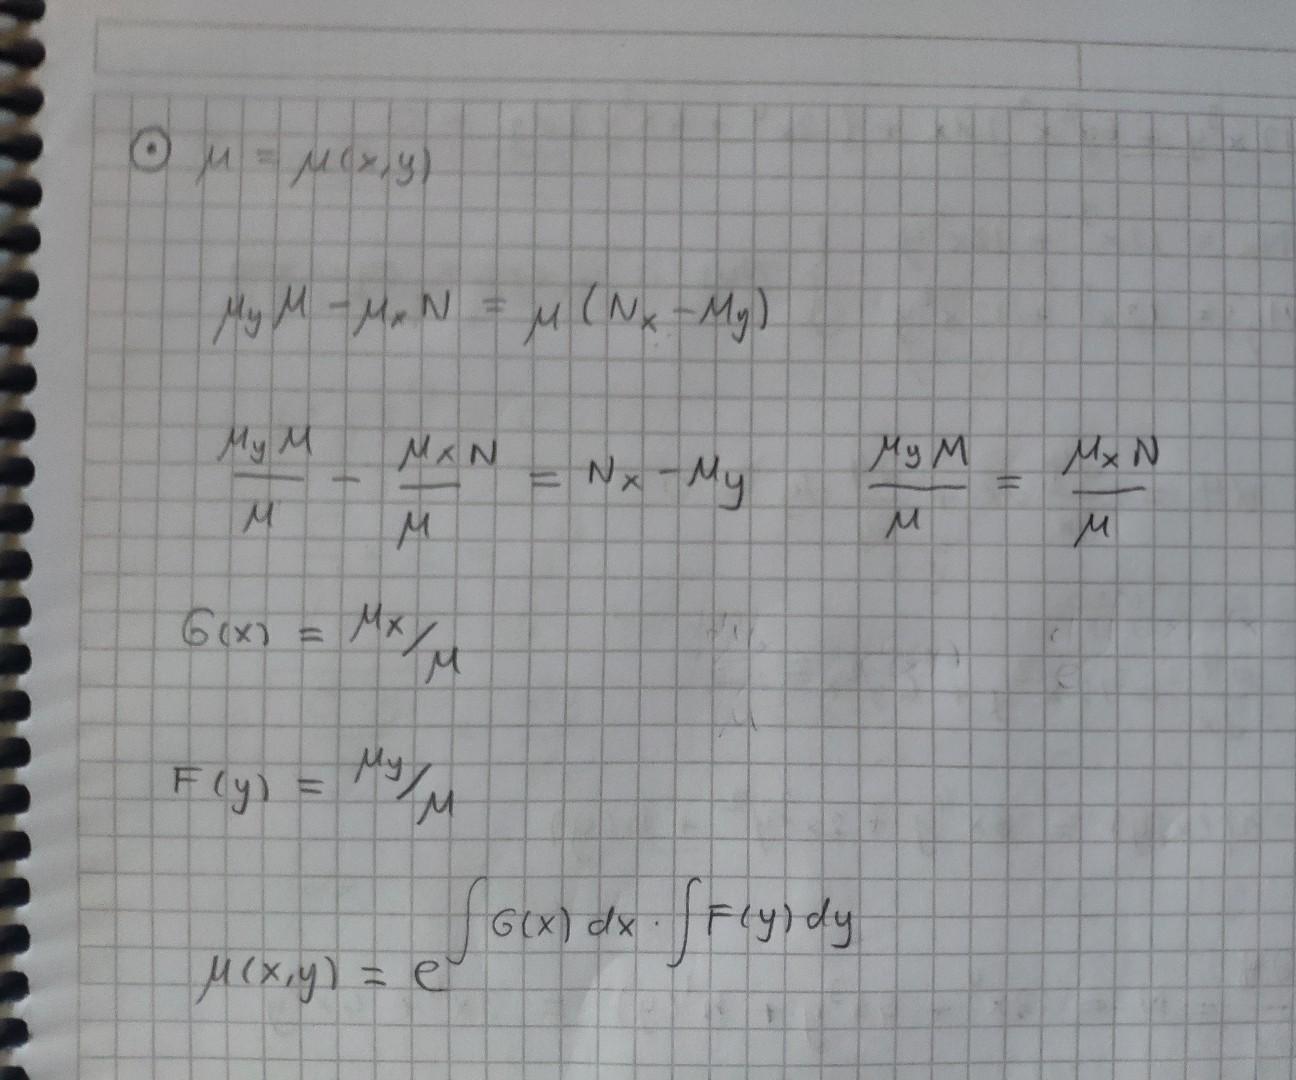 ⊙ μ = μ(x,y)
μyM − μxN = μ (Nx − My)
μyM/μ − μxN/μ = Nx − My    μyM/μ = μxN/μ
G(x) = μx/μ
F(y) = μy/μ
μ(x,y) = e^∫G(x) dx · ∫F(y) dy